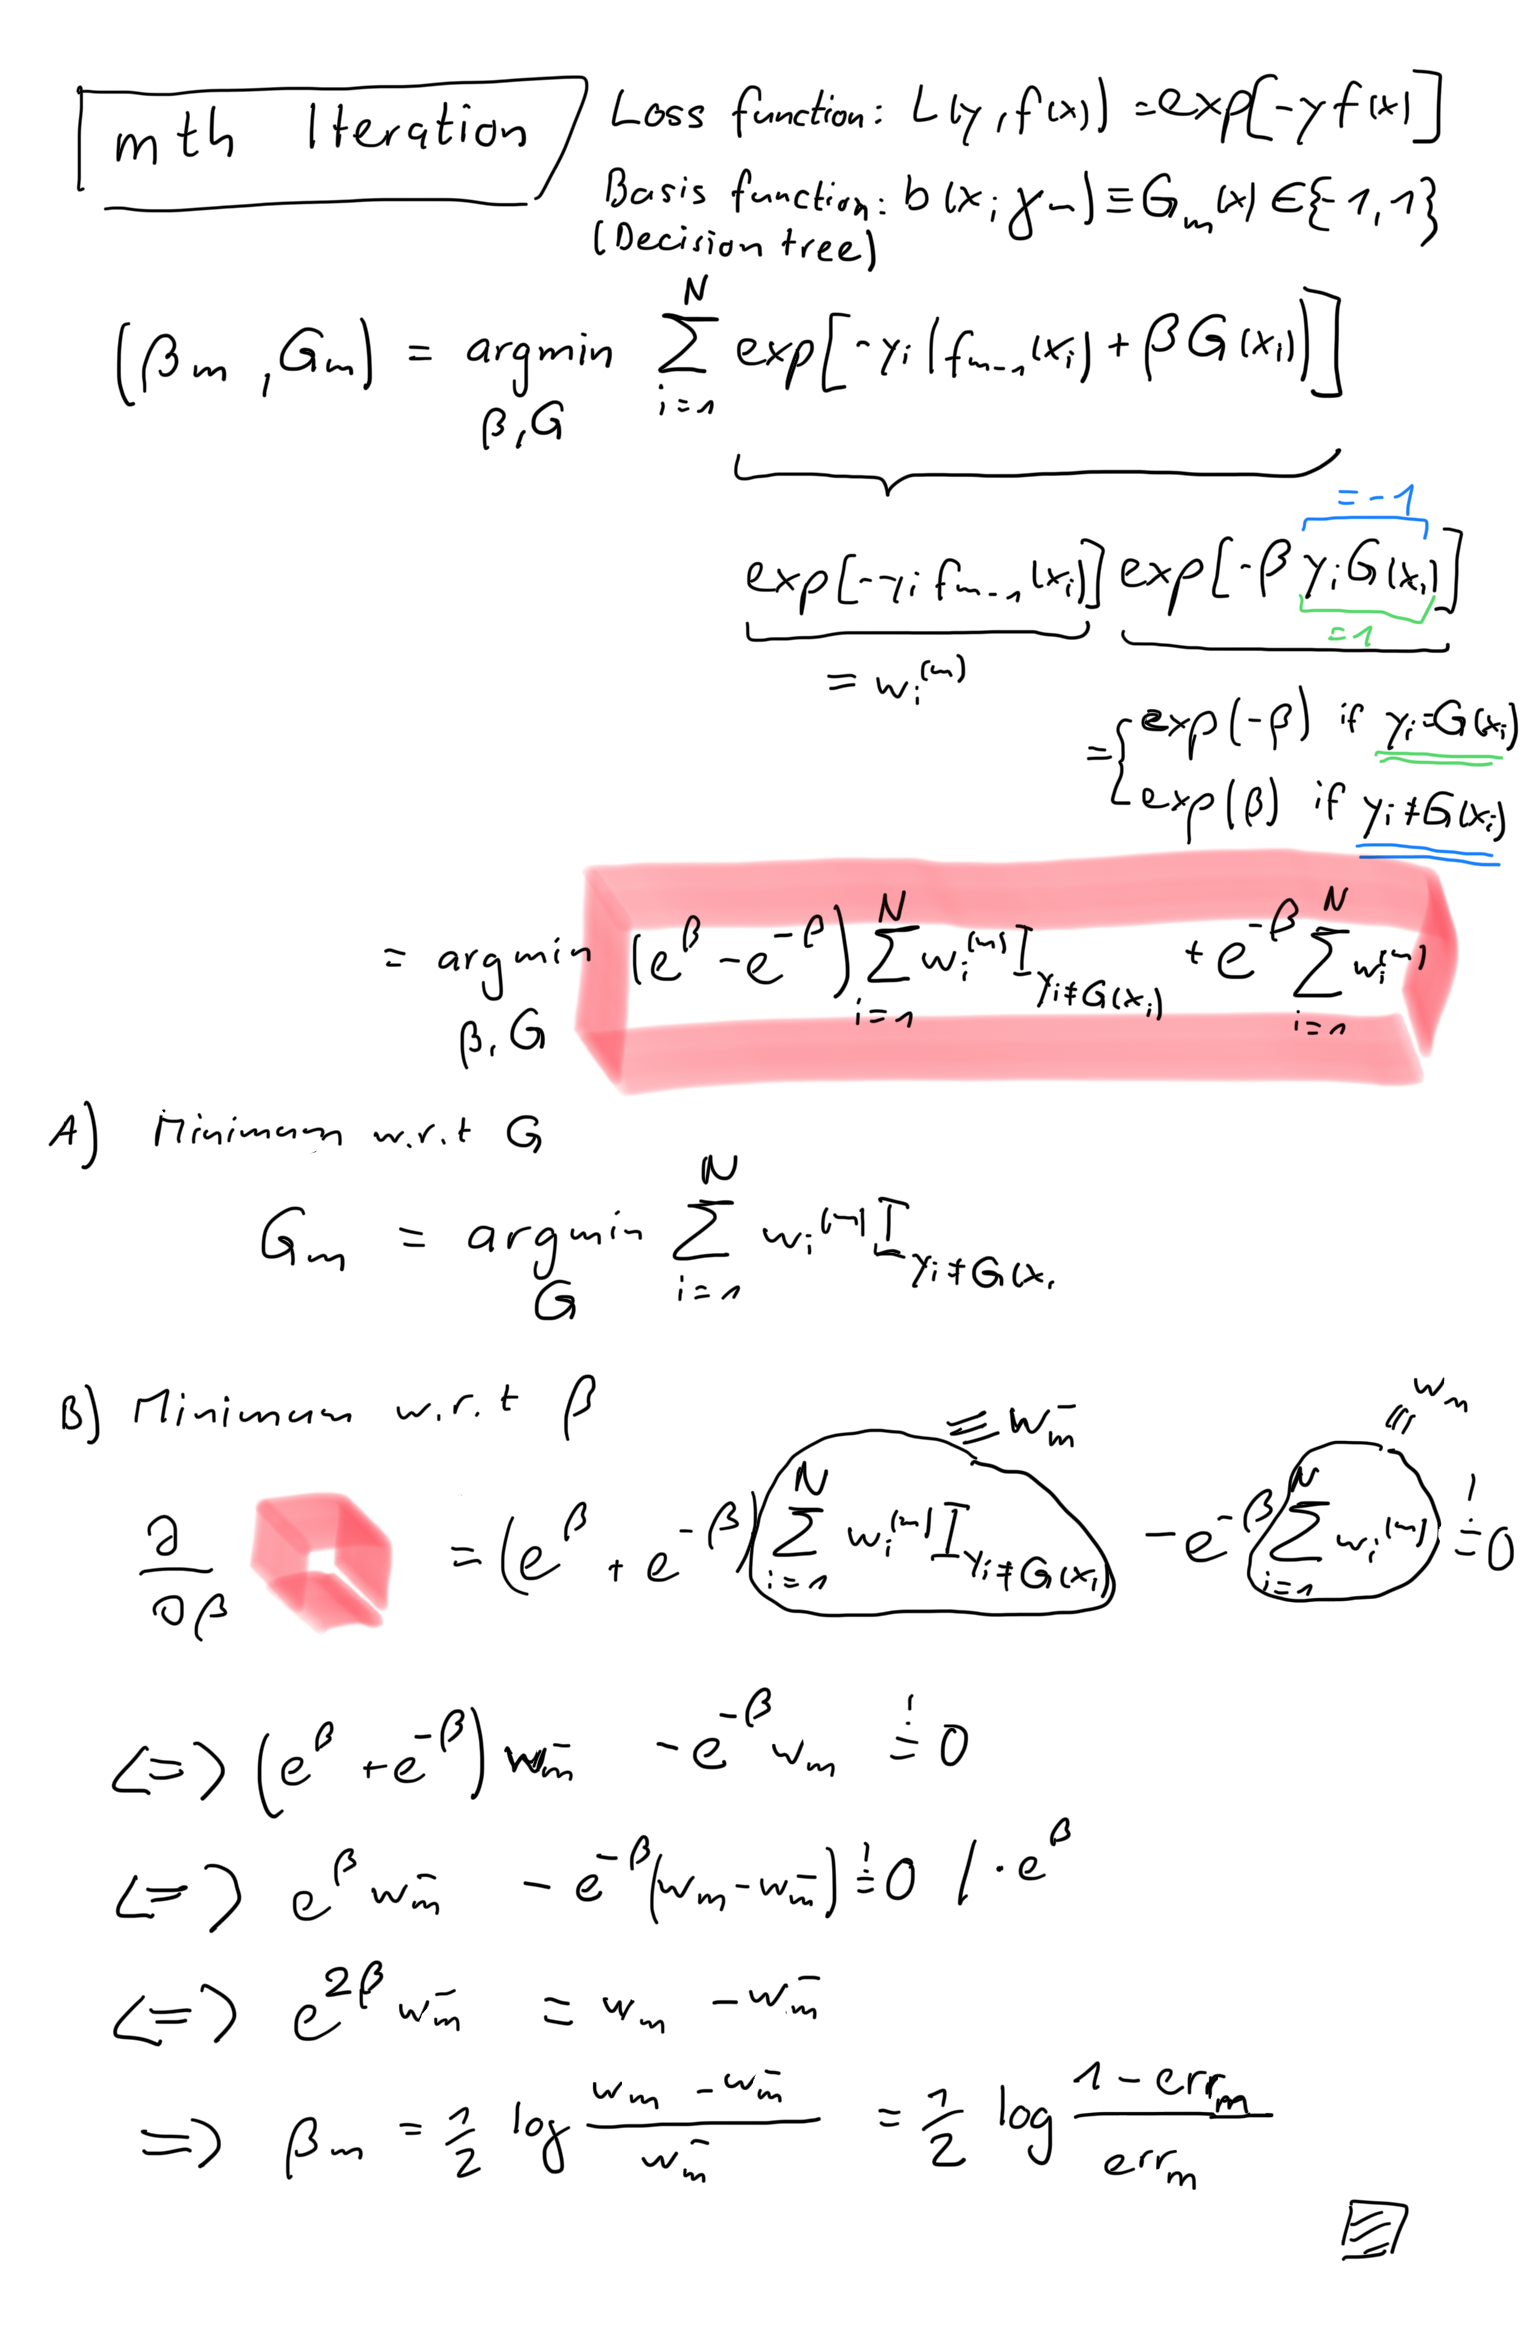 mth Iteration
Loss function: L(y, f(x)) = exp[-y f(x)]
Basis function: b(x; γm) ≡ Gm(x) ∈ {-1, 1}
(Decision tree)
(βm, Gm) = argmin β, G ∑ i=1 N exp[-yi (fm-1(xi) + β G(xi))]
= -1
exp[-yi fm-1(xi)] exp[-β yi G(xi)]
= 1
= wi(m)
= { exp(-β) if yi = G(xi)
exp(β) if yi ≠ G(xi)
= argmin β, G (e^β - e^-β) ∑ i=1 N wi(m) I yi≠G(xi) + e^-β ∑ i=1 N wi(m)
A) Minimum w.r.t G
Gm = argmin G ∑ i=1 N wi(m) I yi≠G(xi
B) Minimum w.r.t β
≡ wm^- ≡ wm
∂/∂β = (e^β + e^-β) ∑ i=1 N wi(m) I yi≠G(xi) - e^-β ∑ i=1 N wi(m) != 0
<=> (e^β + e^-β) wm^- - e^-β wm != 0
<=> e^β wm^- - e^-β (wm - wm^-) != 0 / · e^β
<=> e^2β wm^- = wm - wm^-
=> βm = 1/2 log (wm - wm^-)/wm^- = 1/2 log (1 - errm)/errm